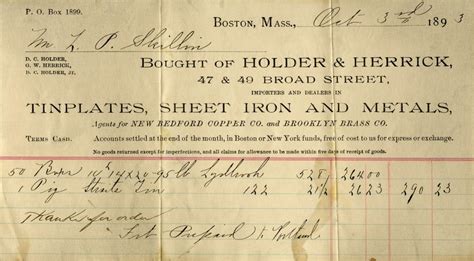 P. O. Box 1899.
Boston, Mass., Oct 3rd 1893
D. C. HOLDER,
G. W. HERRICK,
D. C. HOLDER, JR.
BOUGHT OF HOLDER & HERRICK,
47 & 49 BROAD STREET,
IMPORTERS AND DEALERS IN
TINPLATES, SHEET IRON AND METALS,
Agents for NEW BEDFORD COPPER CO. and BROOKLYN BRASS CO.
TERMS CASH. Accounts settled at the end of the month, in Boston or New York funds, free of cost to us for express or exchange.
No goods returned except for imperfections, and all claims for allowance to be made within five days of receipt of goods.
50 Boxes 14x20 95 lb Lydbrook 528 26400
1 Pig Straits Tin 122 21½ 2623 290 23
Thanks for order
Frt Prepaid to Portland